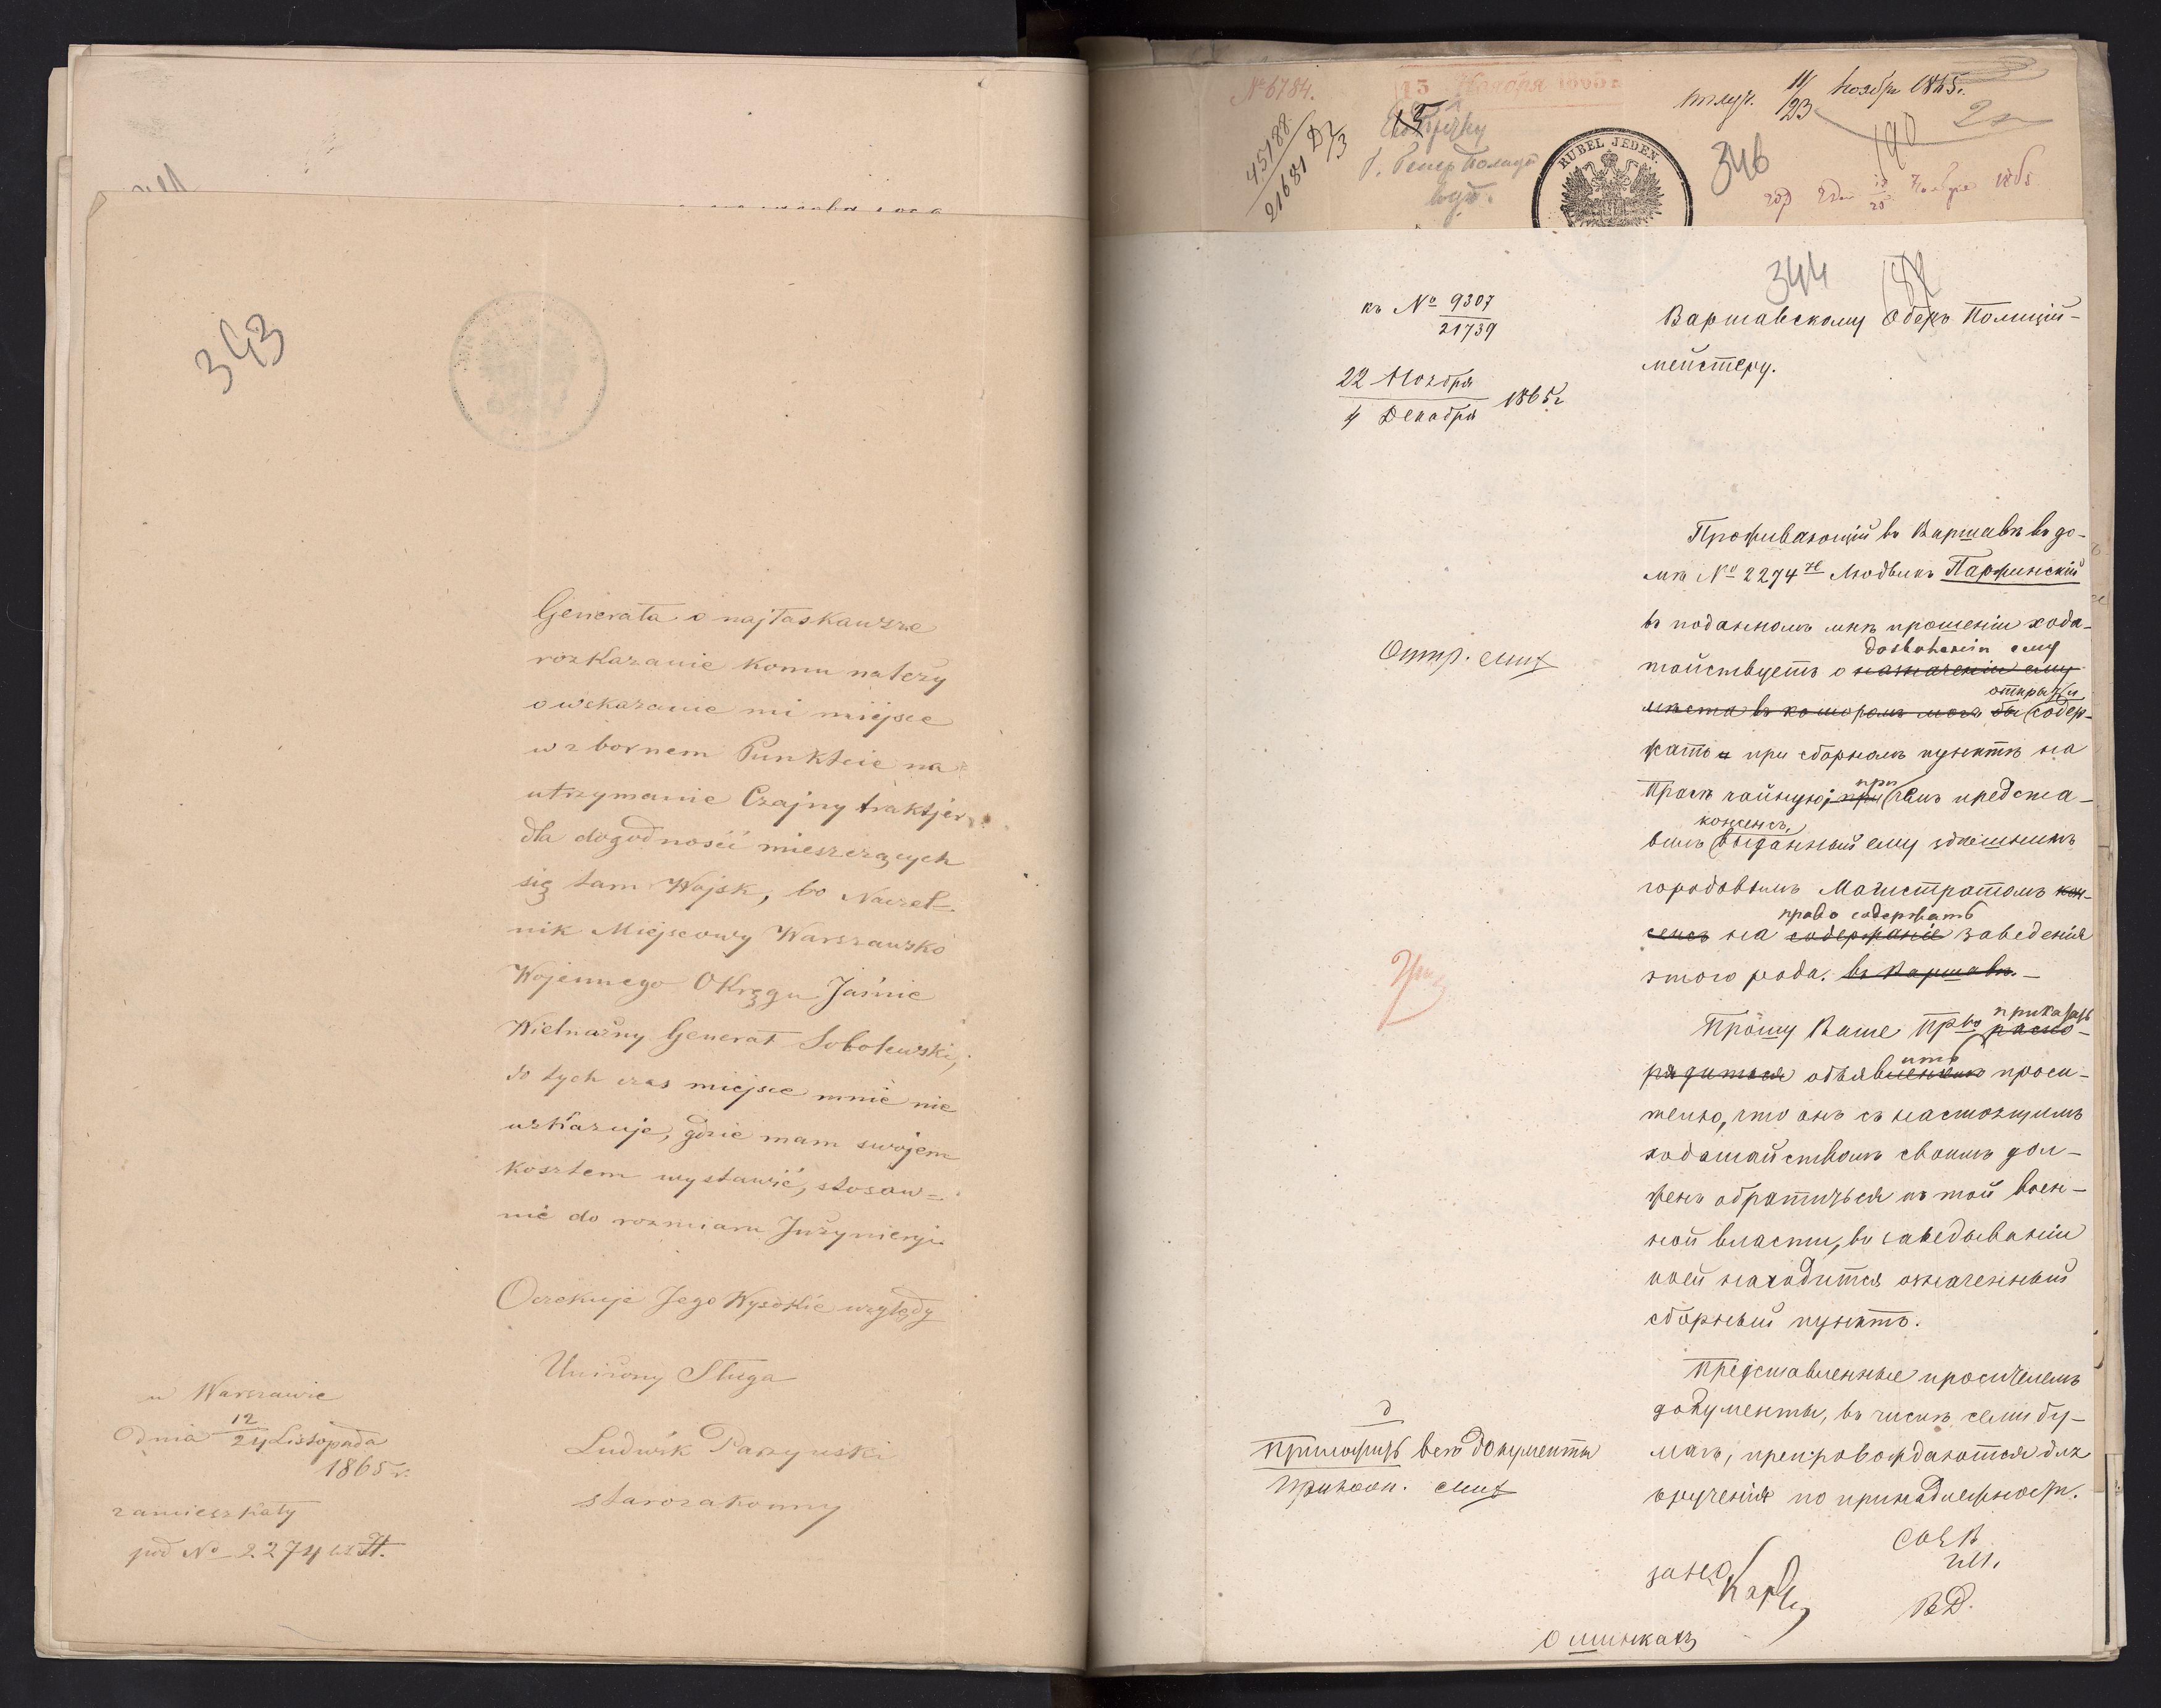 343
Generała o najłaskawsze
rozkazanie komu należy
o wskazanie mi miejsce
w zbornem Punkcie na
utrzymanie Czajny traktjer
dla dogodności mieszczących
się tam Wojsk, bo Naczel-
nik Miejscowy Warszawsko
Wojennego Okręgu Jaśnie
Wielmożny Generał Sobolewski,
do tych czas miejsce mnie nie
wskazuje, gdzie mam swojem
kosztem wystawić, stosow-
nie do rozmiaru Inżynieryi
Oczekuje Jego Wysokie względy
Uniżony Sługa
Ludwik Parzynski
starozakonny
w Warszawie
dnia 12/24 Listopada
1865 r.
zamieszkały
pod No 2274 H.
№ 6784.
15 Ноября 1865
45188
21681 Д 2/3
Г. Генер Полицм
RUBEL JEDEN.
получ. 11/23 Ноября 1865 г.
190
346
Ноября 1865
344
къ № 9307/21739
22 Ноября
4 Декабря 1865 г
Варшавскому Оберъ Полиций-
мейстеру.
Проживающій въ Варшавѣ въ до-
мѣ № 2274 Людвикъ Паржинскій
въ поданномъ мнѣ прошеніи хода-
дозволеніи ему
тайствуетъ о назначеніи ему
открыть и
мѣста въ которомъ могъ бы содер-
жать при сборномъ пунктѣ на
при
Прагѣ чайную; при чемъ предста-
консенсъ,
вилъ выданный ему здѣшнимъ
городовымъ Магистратомъ кон-
право содержать
сенсъ на содержаніе заведенія
этого рода. въ Варшавѣ.
приказать
Прошу Ваше Пр-во распо-
ить
рядиться объявленіемъ проси-
телю, что онъ съ настоящимъ
ходатайствомъ своимъ дол-
женъ обратиться къ той воен-
ной власти, въ завѣдываніи
коей находится означенный
сборный пунктъ.
Представленные просителемъ
документы, въ числѣ семи бу-
магъ, препровождаются для
врученія по принадлежности.
Приложить всѣ документы